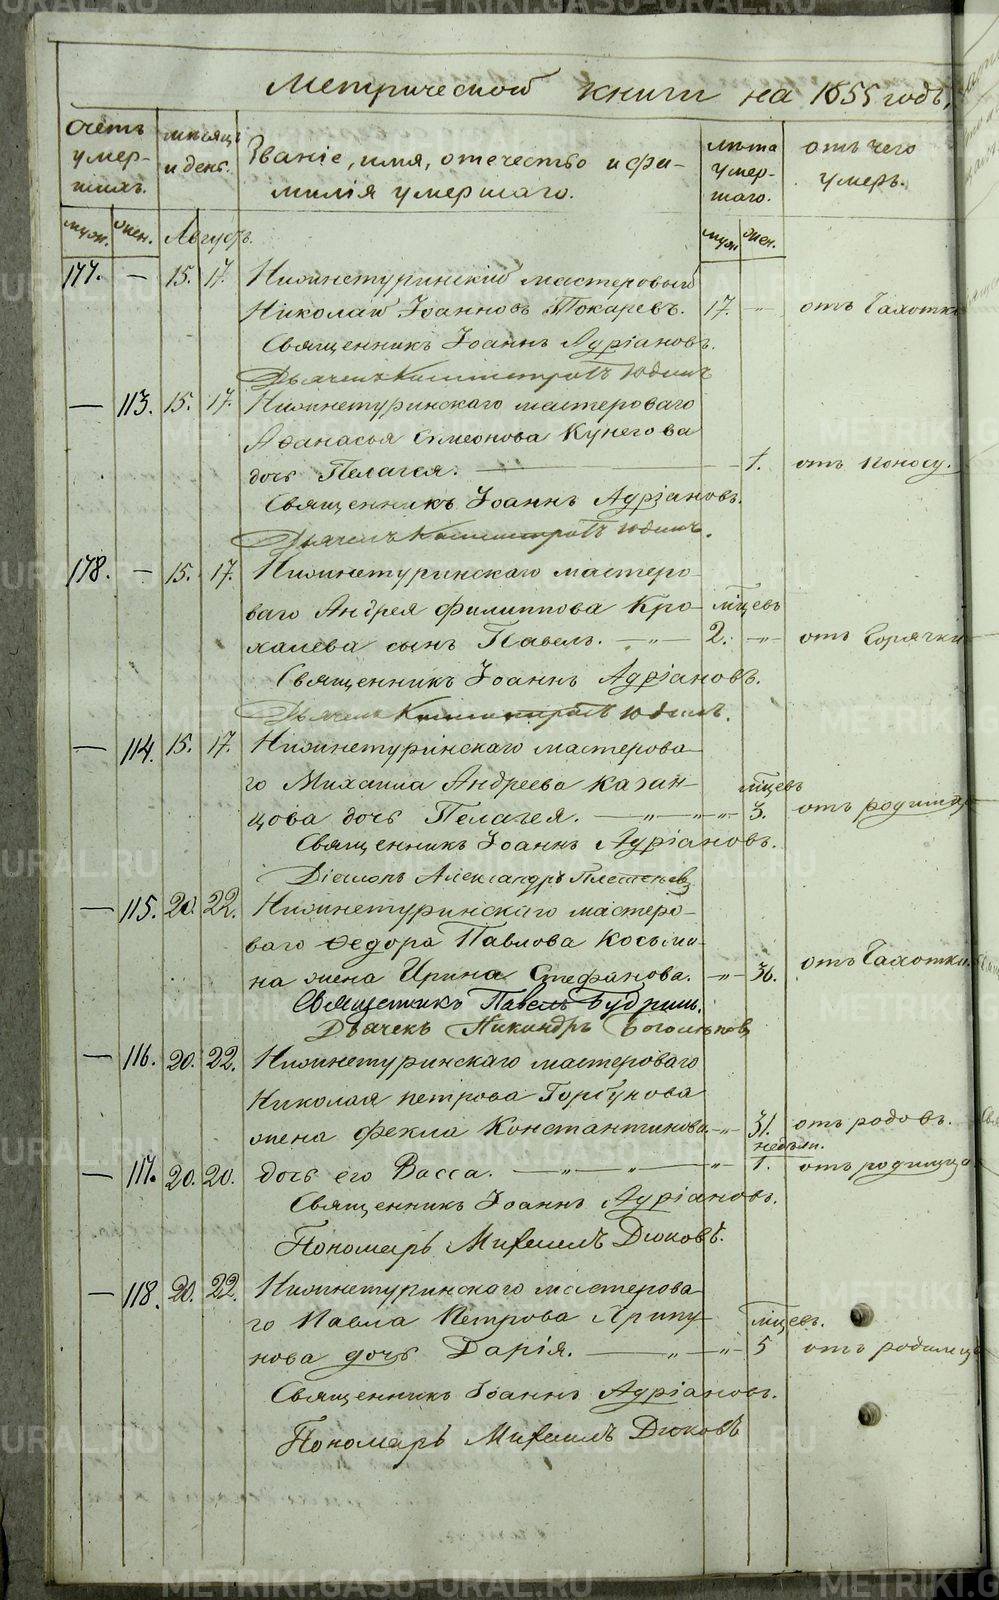 Метрической книги на 1855 годъ.
Счетъ умер-шихъ. мѣсяцъ и день. Званіе, имя, отечество и фа- лѣта умер-шаго. отъ чего умеръ.
милія умершаго.
муж. жен. Августъ. муж жен.
177. — 15. 17. Нижнетуринскій мастеровый
Николай Іоанновъ Токаревъ. 17. — отъ Чахотки
Священникъ Іоаннъ Адріановъ.
Дьячекъ Юдинъ
— 113. 15. 17. Нижнетуринскаго мастероваго
Аѳанасья Симеонова Кунегова
дочь Пелагея. — 1. отъ поносу.
Священникъ Іоаннъ Адріановъ.
Дьячекъ Юдинъ.
178. — 15. 17. Нижнетуринскаго мастеро-
ваго Андрея Филиппова Кро- мѣсцевъ
халева сынъ Павелъ. — „ — 2. „ отъ Горячки
Священникъ Іоаннъ Адріановъ.
Дьячекъ Юдинъ.
— 114. 15. 17. Нижнетуринскаго мастерова-
го Михаила Андреева Казан- мѣсцевъ
цова дочь Пелагея. — „ — „ — „ — 3. отъ родимца
Священникъ Іоаннъ Адріановъ.
Діаконъ Александръ
— 115. 20. 22. Нижнетуринскаго мастеро-
ваго Ѳедора Павлова Косьми-
на жена Ирина Стефанова. — „ — 36. отъ Чахотки.
Священникъ Павелъ Будринъ.
Дьячекъ Никандръ Боголѣповъ
— 116. 20. 22. Нижнетуринскаго мастероваго
Николая Петрова Горбунова
жена Фекла Константинова. — „ — 31. отъ родовъ.
недѣли.
— 117. 20. 20. дочь его Васса. — „ — „ — „ 1. отъ родимца
Священникъ Іоаннъ Адріановъ.
Пономарь Михаилъ Дюковъ.
— 118. 20. 22. Нижнетуринскаго мастерова-
го Павла Петрова Хрипу- мѣсцевъ.
нова дочь Дарія. — „ — „ — 5 отъ родимца
Священникъ Іоаннъ Адріановъ.
Пономарь Михаилъ Дюковъ
METRIKI.GASO-URAL.RU